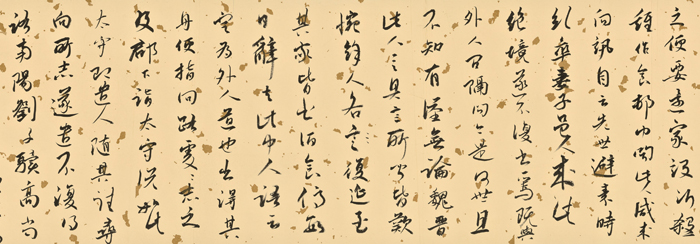 之便要還家設酒殺
雞作食村中聞此咸來
問訊自云先世避秦時
亂率妻子邑人來此
絕境遂不復出焉與
外人間隔問今是何世
不知有漢無論魏晉
此人具言所聞皆歎
惋餘人各復延至
其家皆出酒食停數
日辭去此中人語云
為外人道也出得其
便向路處志之
及郡下詣太守說如此
太守即遣人隨其往尋
向所志遂迷不復得
路南陽劉子驥高尚